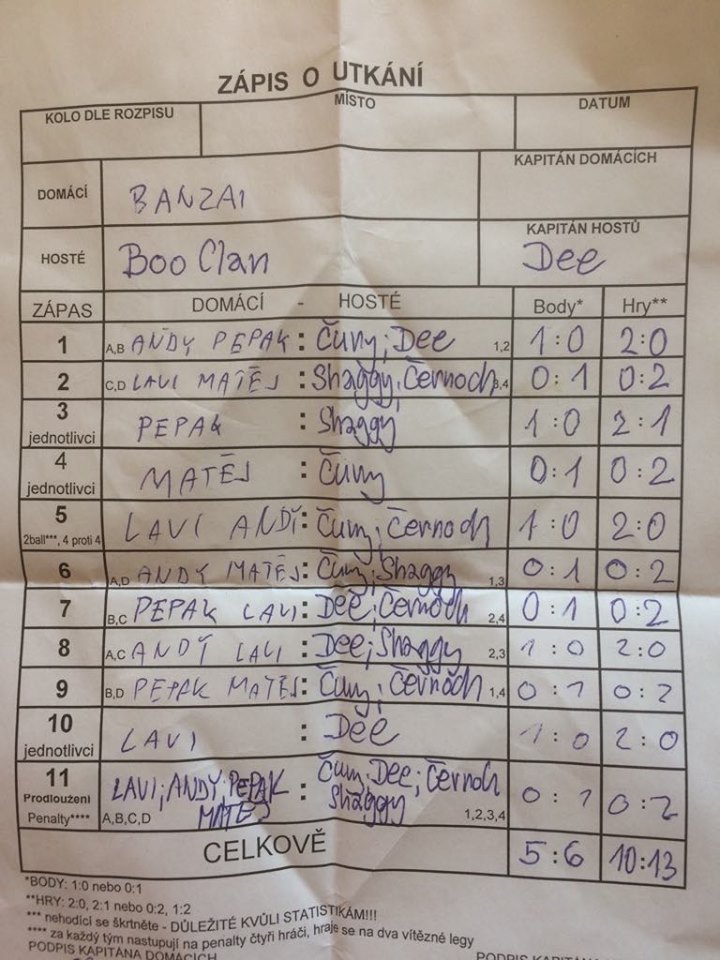 ZÁPIS O UTKÁNÍ
KOLO DLE ROZPISU MÍSTO DATUM
KAPITÁN DOMÁCÍCH
DOMÁCÍ BANZAI
KAPITÁN HOSTŮ
HOSTÉ Boo Clan Dee
ZÁPAS DOMÁCÍ - HOSTÉ Body* Hry**
1 A,B ANDY PEPAK : Čuny; Dee 1,2 1:0 2:0
2 C,D LAVI MATĚJ : Shaggy; Černoch 3,4 0:1 0:2
3 jednotlivci PEPAK : Shaggy 1:0 2:1
4 jednotlivci MATĚJ : Čuny 0:1 0:2
5 LAVI ANDY : Čuny; Černoch 1:0 2:0
2ball***, 4 proti 4
6 A,D ANDY MATĚJ : Čuny; Shaggy 1,3 0:1 0:2
7 B,C PEPAK LAVI : Dee; Černoch 2,4 0:1 0:2
8 A,C ANDY LAVI : Dee; Shaggy 2,3 1:0 2:0
9 B,D PEPAK MATĚJ : Čuny; Černoch 1,4 0:1 0:2
10 jednotlivci LAVI : Dee 1:0 2:0
11 LAVI; ANDY; PEPAK : Čuny; Dee; Černoch 0:1 0:2
Prodloužení MATĚJ Shaggy
Penalty**** A,B,C,D 1,2,3,4
CELKOVĚ 5:6 10:13
*BODY: 1:0 nebo 0:1
**HRY: 2:0, 2:1 nebo 0:2, 1:2
*** nehodící se škrtněte - DŮLEŽITÉ KVŮLI STATISTIKÁM!!!
**** za každý tým nastupují na penalty čtyři hráči, hraje se na dva vítězné legy
PODPIS KAPITÁNA DOMÁCÍCH